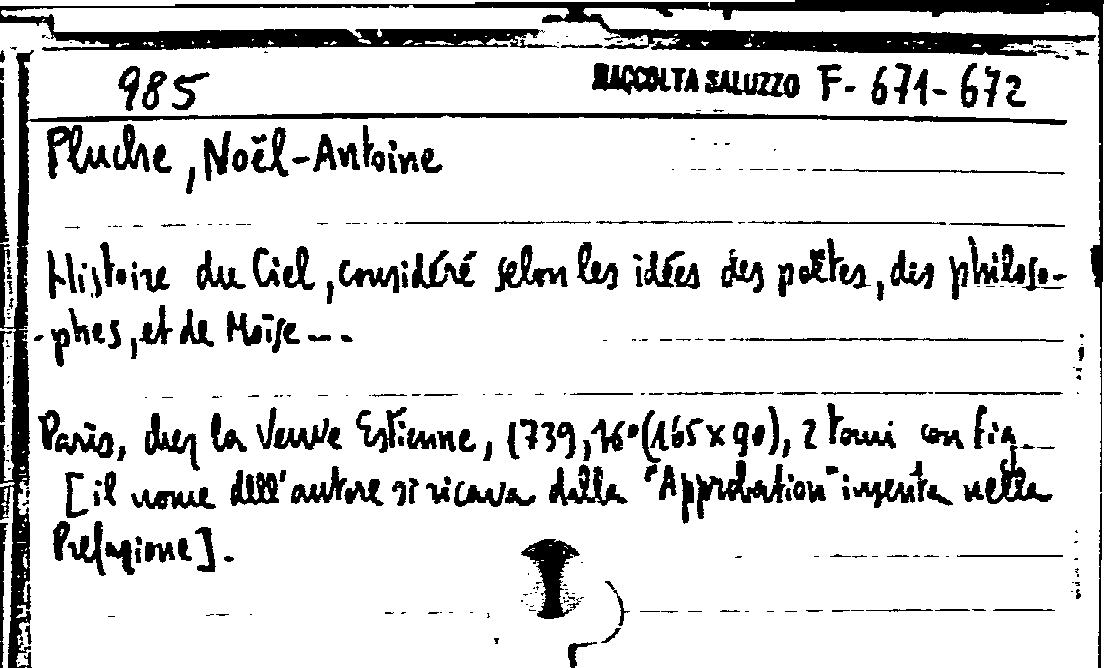 985 RACCOLTA SALUZZO F- 671-672
Pluche, Noël-Antoine
Histoire du Ciel, considéré selon les idées des poëtes, des philoso-
-phes, et de Moïse ---
Paris, chez la Veuve Estienne, 1739, 16° (165 x 90), 2 tomi con fig.
[il nome dell'autore si ricava dalla "Approbation" inserita nella
Prefazione].